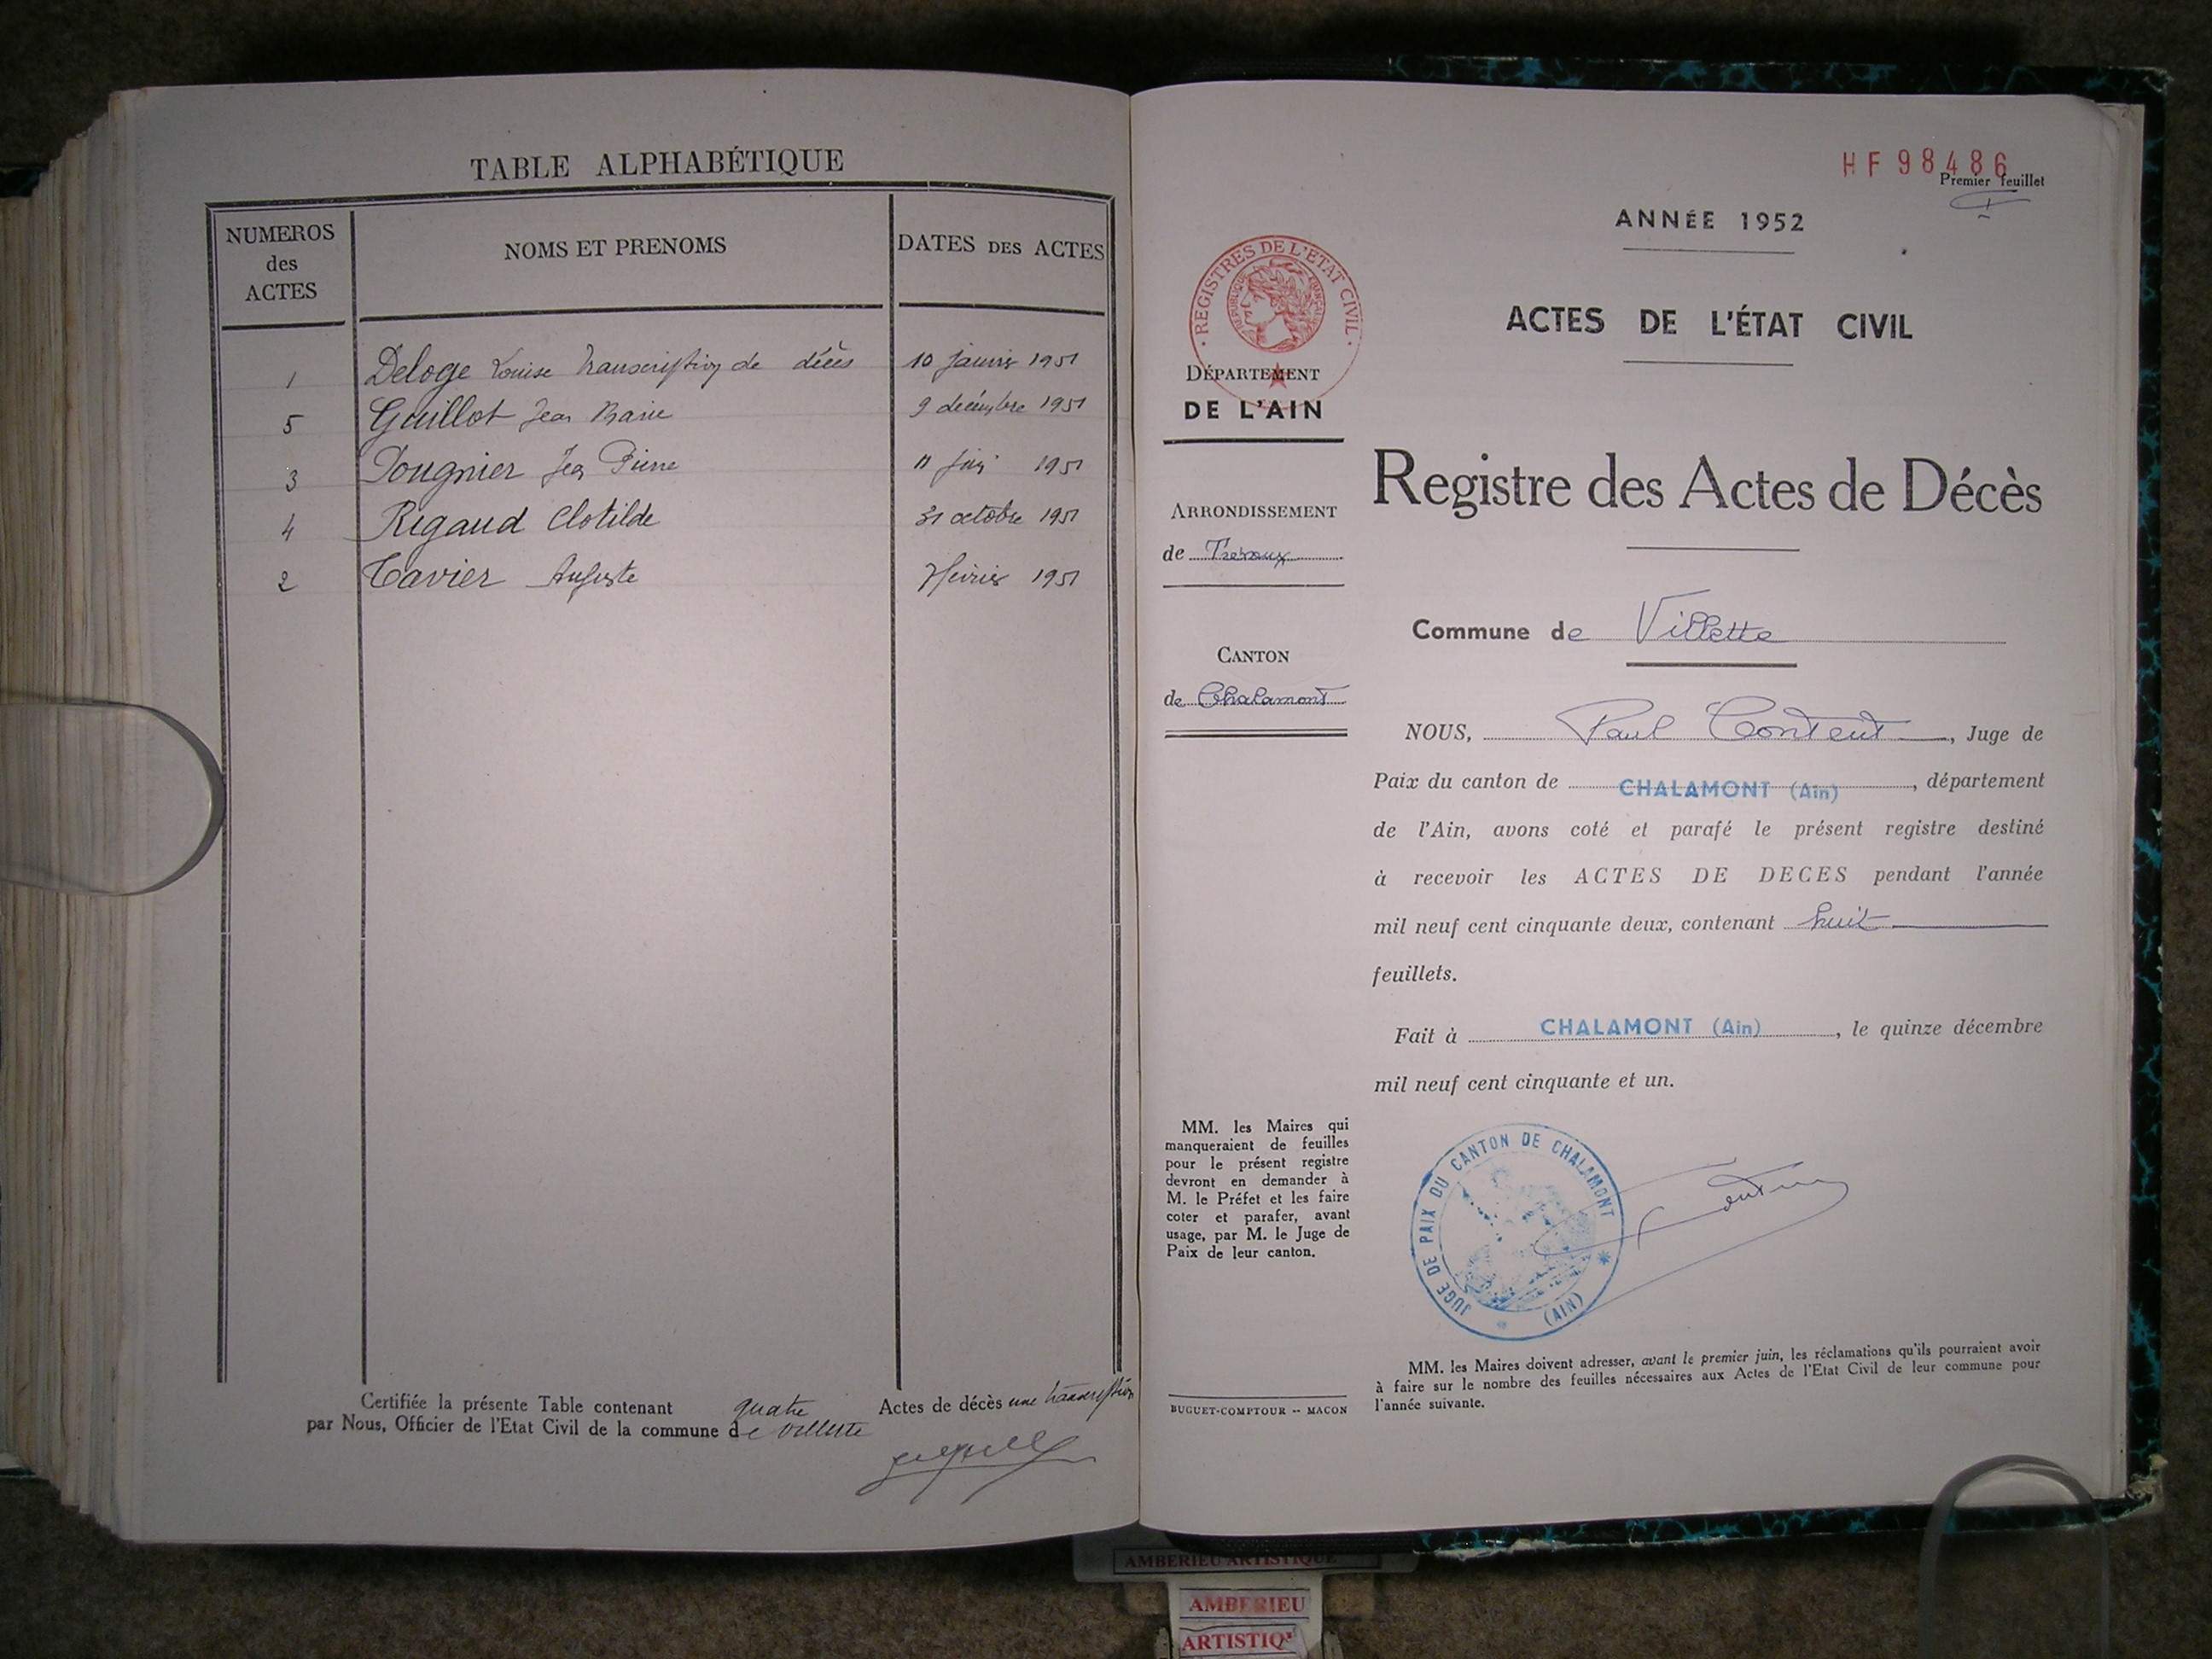 TABLE ALPHABÉTIQUE
NUMEROS des ACTES
NOMS ET PRENOMS
DATES DES ACTES
1 Deloge Louise Transcription de décès 10 janvier 1951
5 Guillot Jean Marie 9 décembre 1951
3 Pougnier Jean Pierre 11 1951
4 Rigaud Clotilde 31 octobre 1951
2 Tavier Auguste 7 février 1951
Certifiée la présente Table contenant quatre Actes de décès une transcription
par Nous, Officier de l'Etat Civil de la commune de Villette
HF 98486
Premier feuillet
I
ANNÉE 1952
ACTES DE L'ÉTAT CIVIL
· REGISTRES DE L'ÉTAT CIVIL ·
RÉPUBLIQUE FRANÇAISE
DÉPARTEMENT
DE L'AIN
ARRONDISSEMENT
de Trévoux
CANTON
de Chalamont
Registre des Actes de Décès
Commune de Villette
NOUS, Paul Content, Juge de
Paix du canton de CHALAMONT (Ain), département
de l'Ain, avons coté et parafé le présent registre destiné
à recevoir les ACTES DE DECES pendant l'année
mil neuf cent cinquante deux, contenant huit
feuillets.
Fait à CHALAMONT (Ain), le quinze décembre
mil neuf cent cinquante et un.
MM. les Maires qui
manqueraient de feuilles
pour le présent registre
devront en demander à
M. le Préfet et les faire
coter et parafer, avant
usage, par M. le Juge de
Paix de leur canton.
JUGE DE PAIX DU CANTON DE CHALAMONT
(AIN)
MM. les Maires doivent adresser, avant le premier juin, les réclamations qu'ils pourraient avoir
à faire sur le nombre des feuilles nécessaires aux Actes de l'Etat Civil de leur commune pour
l'année suivante.
BUGUET-COMPTOUR -- MACON
AMBERIEU ARTISTIQUE
AMBERIEU
ARTISTIQ